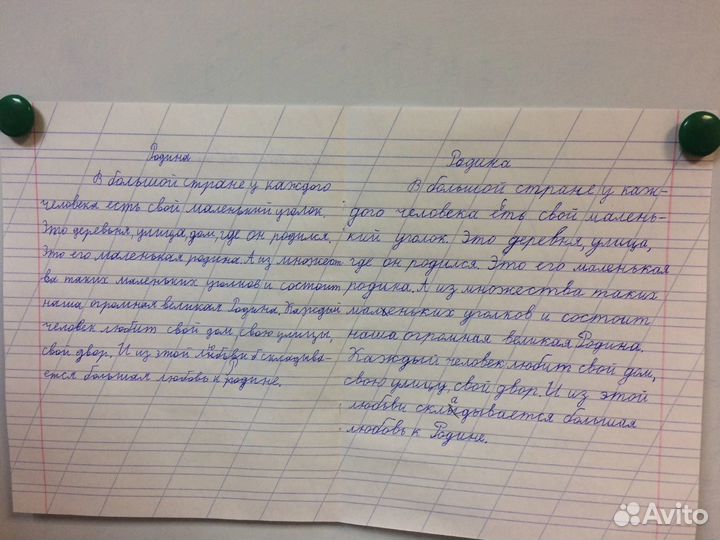 Родина
В большой стране у каждого
человека есть свой маленький уголок.
Это деревня, улица, дом, где он родился.
Это его маленькая родина. А из множест
ва таких маленьких уголков и состоит
наша огромная великая Родина. Каждый
человек любит свой дом, свою улицу,
свой двор. И из этой любви и складыва-
ется большая любовь к родине.
Родина
В большой стране у каж-
дого человека есть свой малень-
кий уголок. Это деревня, улица,
где он родился. Это его маленькая
родина. А из множества таких
маленьких уголков и состоит
наша огромная великая Родина.
Каждый человек любит свой дом,
свою улицу, свой двор. И из этой
любви складывается большая
любовь к Родине.
Avito